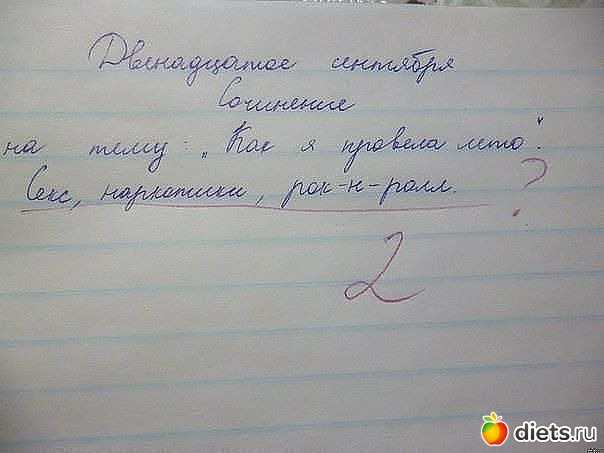 Двенадцатое сентября
Сочинение
на тему: „Как я провела лето".
Секс, наркотики, рок-н-ролл. ?
2
diets.ru